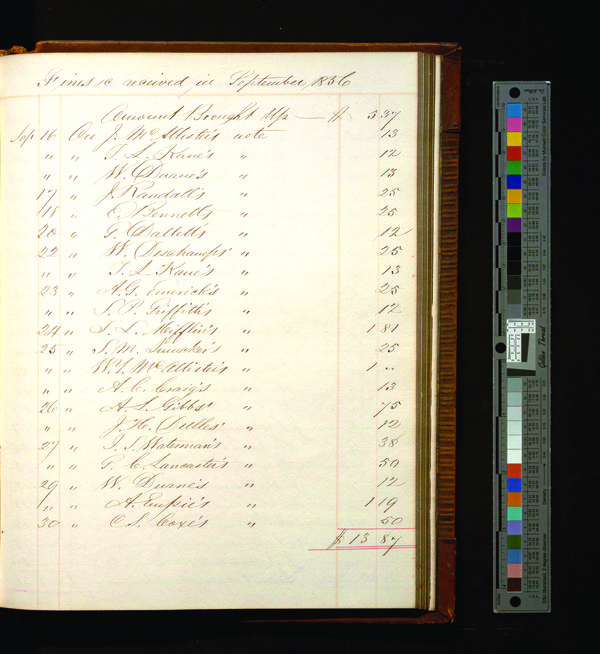 Fines &c received in September, 1856
Amount Brought Up — $ 5 37
Sep 16 On J. McAllister's note 13
" " T. L. Kane's " 12
" " W. Duane's " 13
17 " J. Randall's " 25
18 " E. Bennett's " 25
20 " G. Dalbett's " 12
22 " W. Deschamps' " 25
" " T. L. Kane's " 13
23 " A. G. Emerick's " 25
" " S. P. Griffith's " 12
24 " S. L. Mifflin's " 1 81
25 " S. M. " 25
" " W. Y. McAllister's " 1 "
" " A. C. Craig's " 13
26 " A. S. Gibbs' " 75
" " J. H. Dulles' " 12
27 " I. S. Waterman's " 38
" " G. C. Lancaster's " 50
29 " W. Duane's " 12
" " A. Empie's " 1 19
30 " C. S. Coxe's " 50
$ 13 87